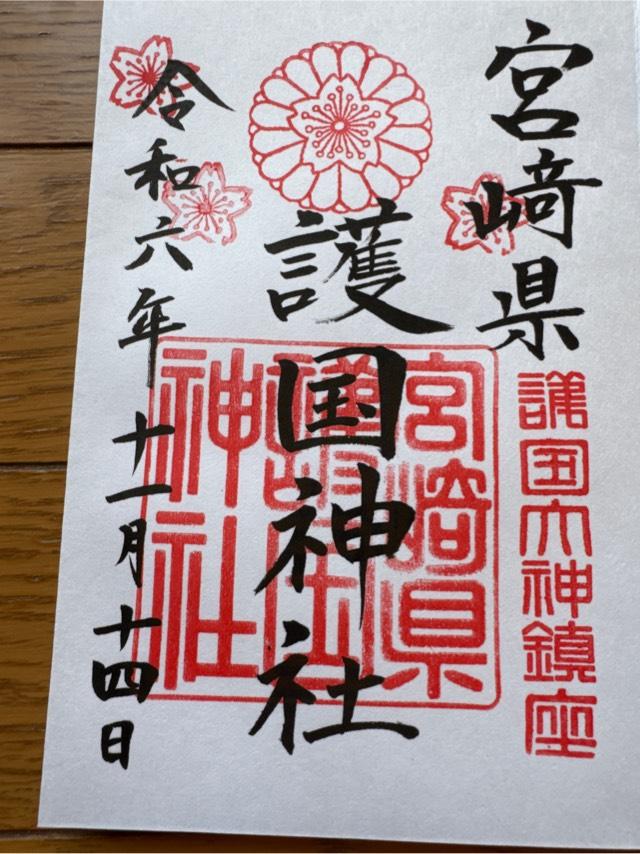 宮﨑県
護国大神鎮座
護国神社
宮﨑県
護国
神社
令和六年十一月十四日